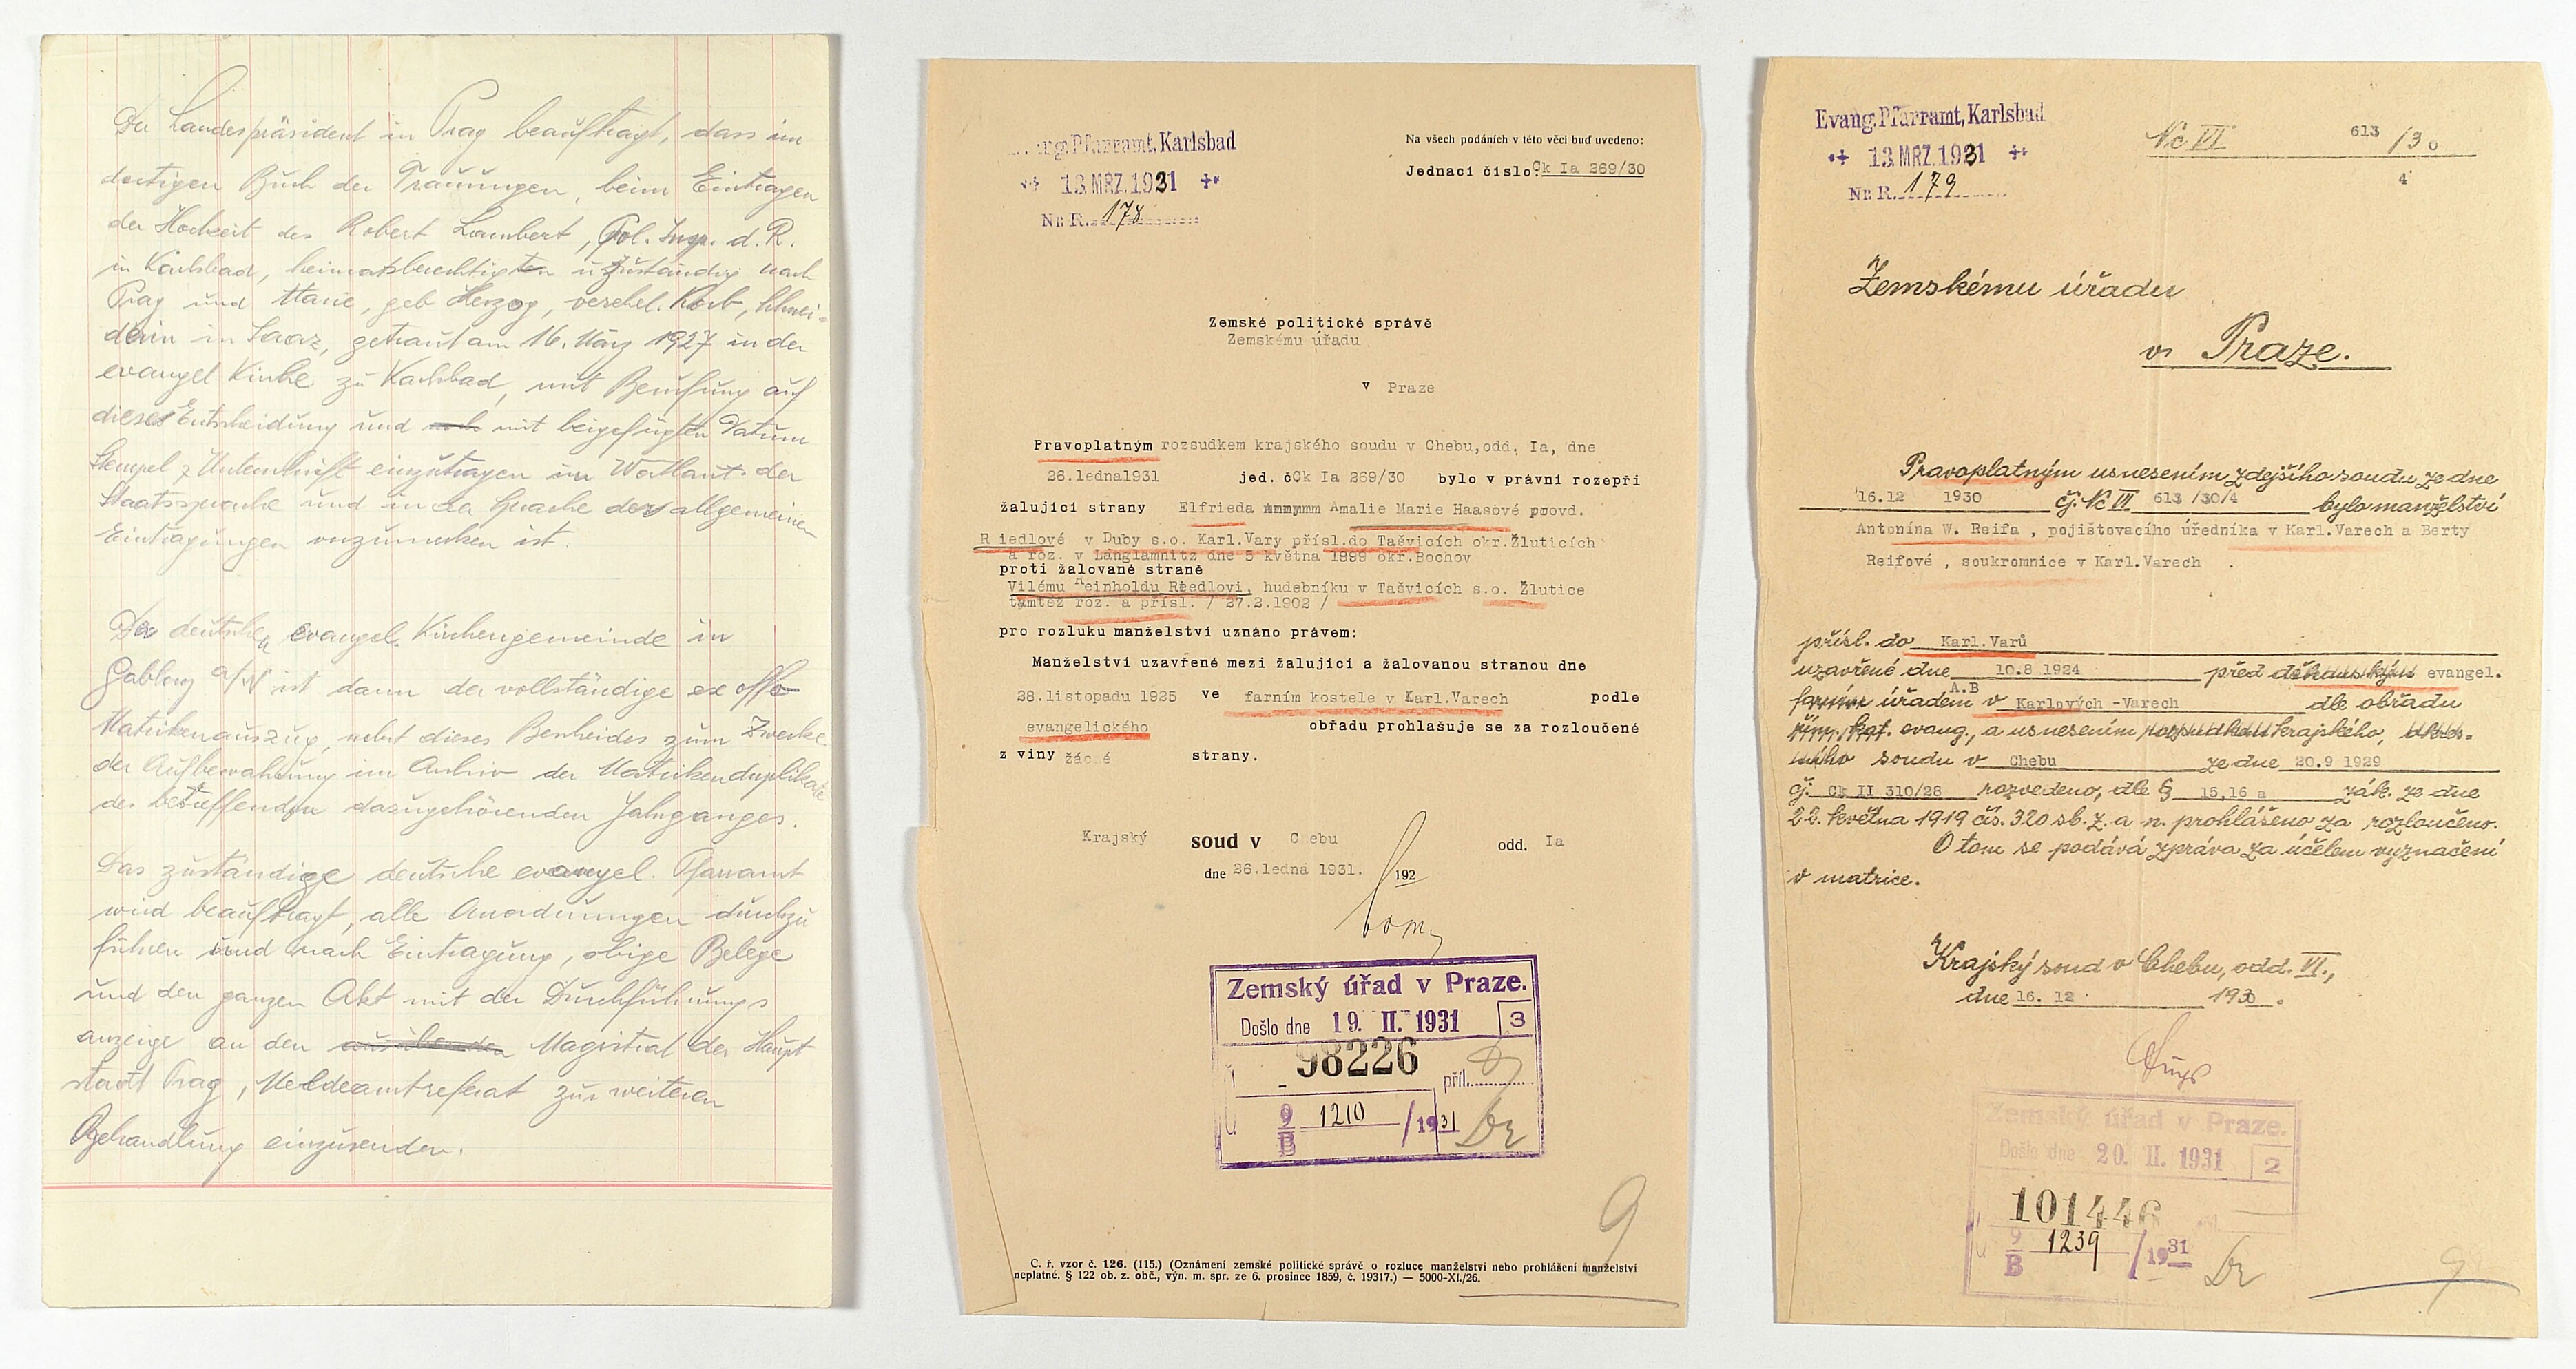 Der Landespräsident in Prag beauftragt, dass im
dortigen Buch der Trauungen, beim Eintragen
der Hochzeit des Robert Lambert, Pol. Insp. d. R.
in Karlsbad, heimatsberechtigten u zuständig nach
Prag und Marie, geb Herzog, verehel. Korb, Schnei-
derin in Saaz, getraut am 16. März 1927 in der
evangel Kirche zu Karlsbad, mit Berufung auf
dieses Entscheidung und mit beigefügten Datum
Stempel & Unterschrift einzutragen im Wortlaut der
Staatssprache und in der Sprache der allgemeinen
Eintragungen vorzumerken ist.
Der deutschen evangel. Kirchengemeinde in
Gablonz a/N ist dann der vollständige ex offo
Matrikenauszug, nebst dieses Bescheides zum Zwecke
der Aufbewahrung im Archiv der Matrikenduplikate
des betreffenden dazugehörenden Jahrganges.
Das zuständige deutsche evangel. Pfarramt
wird beauftragt, alle Anordnungen durchzu
führen und nach Eintragung, obige Belege
und den ganzen Akt mit der Durchführungs
anzeige an den Magistrat der Haupt
stadt Prag, Meldeamtreferat zur weiteren
Behandlung einzusenden.
Pfarramt, Karlsbad
13. MRZ. 1931
Nr. R. 178
Na všech podáních v této věci buď uvedeno:
Jednací číslo Ck Ia 269/30
Zemské politické správě
Zemskému úřadu
v Praze
Pravoplatným rozsudkem krajského soudu v Chebu, odd. Ia, dne
26.ledna1931 jed. čCk Ia 269/30 bylo v právní rozepři
žalující strany Elfrieda Amalie Marie Haasové provd.
R iedlové v Duby s.o. Karl.Vary přísl.do Tašvicích okr.Žluticích
a roz. v Langlamnitz dne 5 května 1899 okr.Bochov
proti žalované straně
Vilému Reinholdu Riedlovi, hudebníku v Tašvicích s.o. Žlutice
tamtéž roz. a přísl. / 27.2.1902 /
pro rozluku manželství uznáno právem:
Manželství uzavřené mezi žalující a žalovanou stranou dne
28.listopadu 1925 ve farním kostele v Karl.Varech podle
evangelického obřadu prohlašuje se za rozloučené
z viny žácné strany.
Krajský soud v Chebu odd. Ia
dne 26.ledna 1931. 192
Zemský úřad v Praze.
Došlo dne 19. II. 1931 3
98226
příl.
9 1210 /1931
B
9
C. ř. vzor č. 126. (115.) (Oznámení zemské politické správě o rozluce manželství nebo prohlášení manželství
neplatné. § 122 ob. z. obč., výn. m. spr. ze 6. prosince 1859, č. 19317.) — 5000-XI./26.
Evang. Pfarramt, Karlsbad
13. MRZ. 1931
Nr. R. 179
Nc VI 613 /30
4
Zemskému úřadu
v Praze.
Pravoplatným usnesením zdejšího soudu ze dne
16.12 1930 čj. Nc VI 613 /30/4 bylo manželství
Antonína W. Reifa , pojišťovacího úředníka v Karl.Varech a Berty
Reifové , soukromnice v Karl.Varech .
přísl. do Karl.Varů
uzavřené dne 10.8 1924 před děkanským evangel.
farním úřadem A.B v Karlových -Varech dle obřadu
řím. kat. evang., a usnesením rozsudkem krajského, okres-
ního soudu v Chebu ze dne 20.9 1929
čj. Ck II 310/28 rozvedeno, dle § 15,16 a zák. ze dne
22. května 1919 čís. 320 sb. z. a n. prohlášeno za rozloučeno.
O tom se podává zpráva za účelem vyznačení
v matrice.
Krajský soud v Chebu, odd. VI.,
dne 16. 12 1930.
Zemský úřad v Praze.
Došlo dne 20. II. 1931 2
101446
9 1239 /1931
B
9